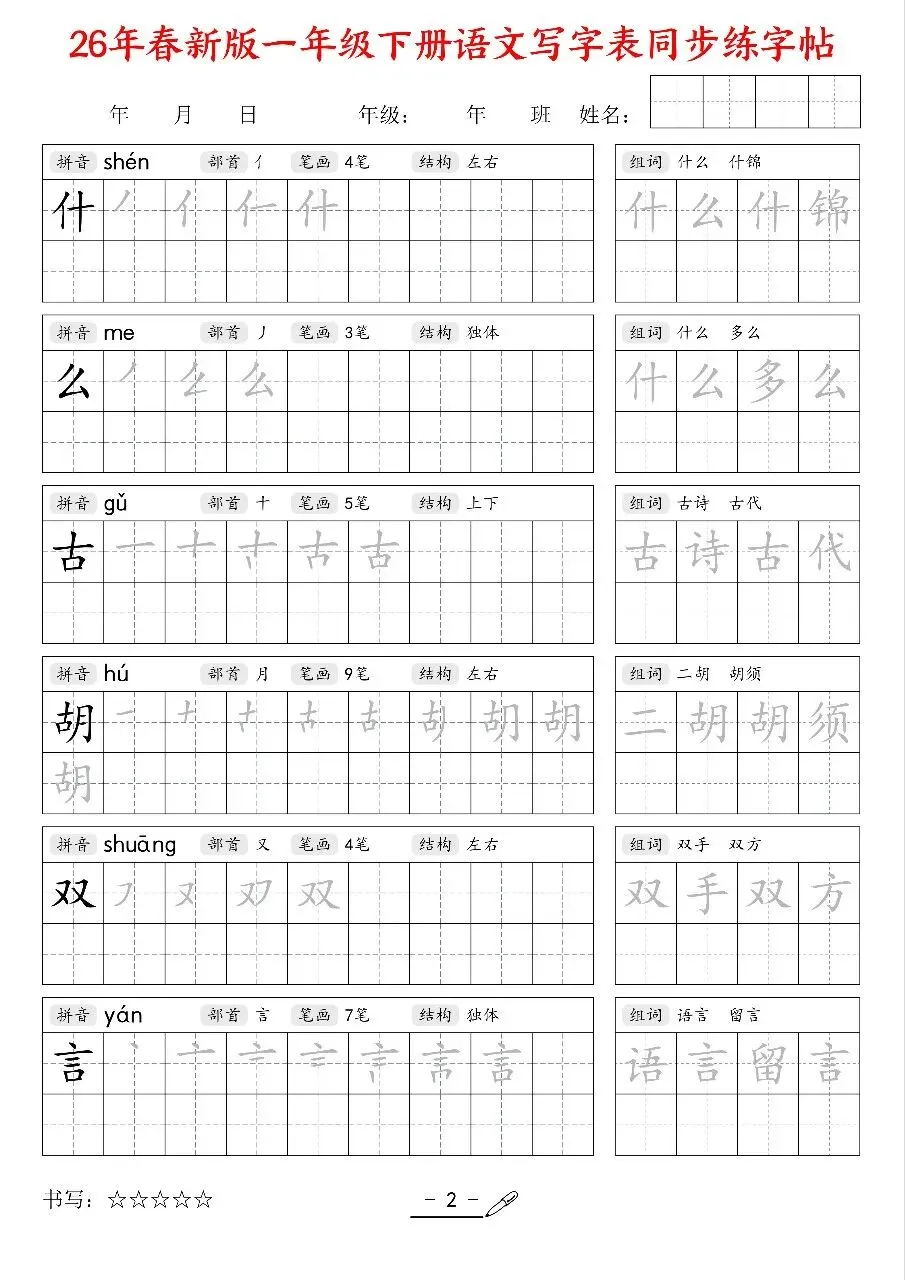 26年春新版一年级下册语文写字表同步练字帖
年 月 日 年级： 年 班 姓名：
拼音 shén 部首 亻 笔画 4笔 结构 左右
组词 什么 什锦
什 丿 亻 仁 什
什 么 什 锦
拼音 me 部首 丿 笔画 3笔 结构 独体
组词 什么 多么
么
么
什 么 多 么
拼音 gǔ 部首 十 笔画 5笔 结构 上下
组词 古诗 古代
古 一 十 古 古
古 诗 古 代
拼音 hú 部首 月 笔画 9笔 结构 左右
组词 二胡 胡须
胡 一 十 古 胡 胡
二 胡 胡 须
胡
拼音 shuāng 部首 又 笔画 4笔 结构 左右
组词 双手 双方
双 又 双
双 手 双 方
拼音 yán 部首 言 笔画 7笔 结构 独体
组词 语言 留言
言 丶 亠 言
语 言 留 言
书写：☆☆☆☆☆
- 2 -